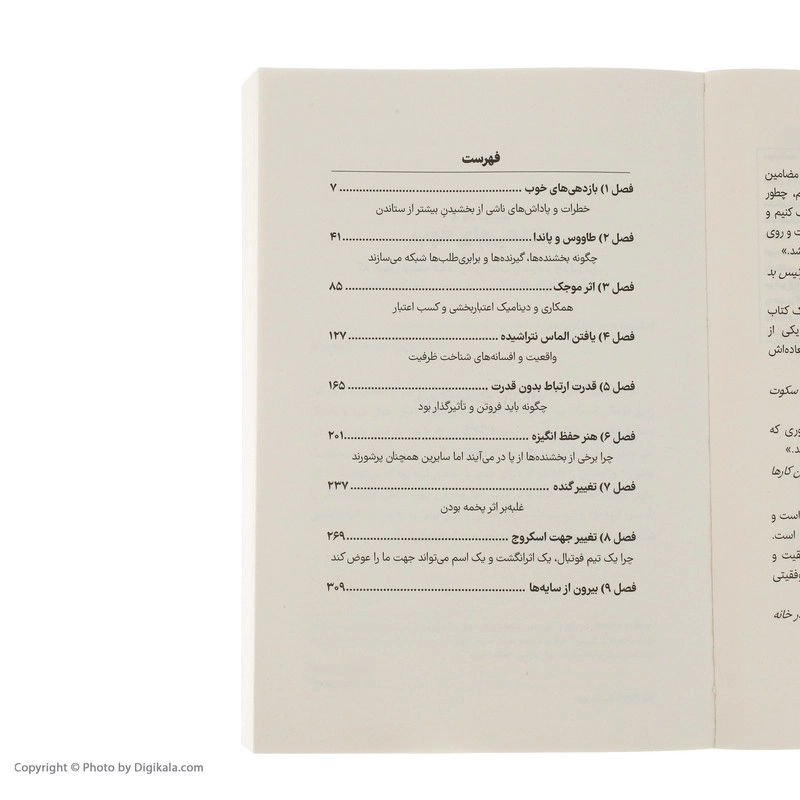 فهرست
فصل ۱) بازدهی‌های خوب ........................................................ ۷
خطرات و پاداش‌های ناشی از بخشیدنِ بیشتر از ستاندن
فصل ۲) طاووس و پاندا ........................................................ ۴۱
چگونه بخشنده‌ها، گیرنده‌ها و برابری‌طلب‌ها شبکه می‌سازند
فصل ۳) اثر موجک ........................................................ ۸۵
همکاری و دینامیک اعتباربخشی و کسب اعتبار
فصل ۴) یافتن الماس نتراشیده ........................................................ ۱۲۷
واقعیت و افسانه‌های شناخت ظرفیت
فصل ۵) قدرت ارتباط بدون قدرت ........................................................ ۱۶۵
چگونه باید فروتن و تأثیرگذار بود
فصل ۶) هنر حفظ انگیزه ........................................................ ۲۰۱
چرا برخی از بخشنده‌ها از پا در می‌آیند اما سایرین همچنان پرشورند
فصل ۷) تغییر گنده ........................................................ ۲۳۷
غلبه‌بر اثر پخمه بودن
فصل ۸) تغییر جهت اسکروچ ........................................................ ۲۶۹
چرا یک تیم فوتبال، یک اثرانگشت و یک اسم می‌تواند جهت ما را عوض کند
فصل ۹) بیرون از سایه‌ها ........................................................ ۳۰۹
مضامین
چطور
کنیم و
ت و روی
شد.»
ئیس بد
ک کتاب
یکی از
سکوت
وری که
ن کارها
است و
است.
قیت و
وفقیتی
در خانه
Copyright © Photo by Digikala.com